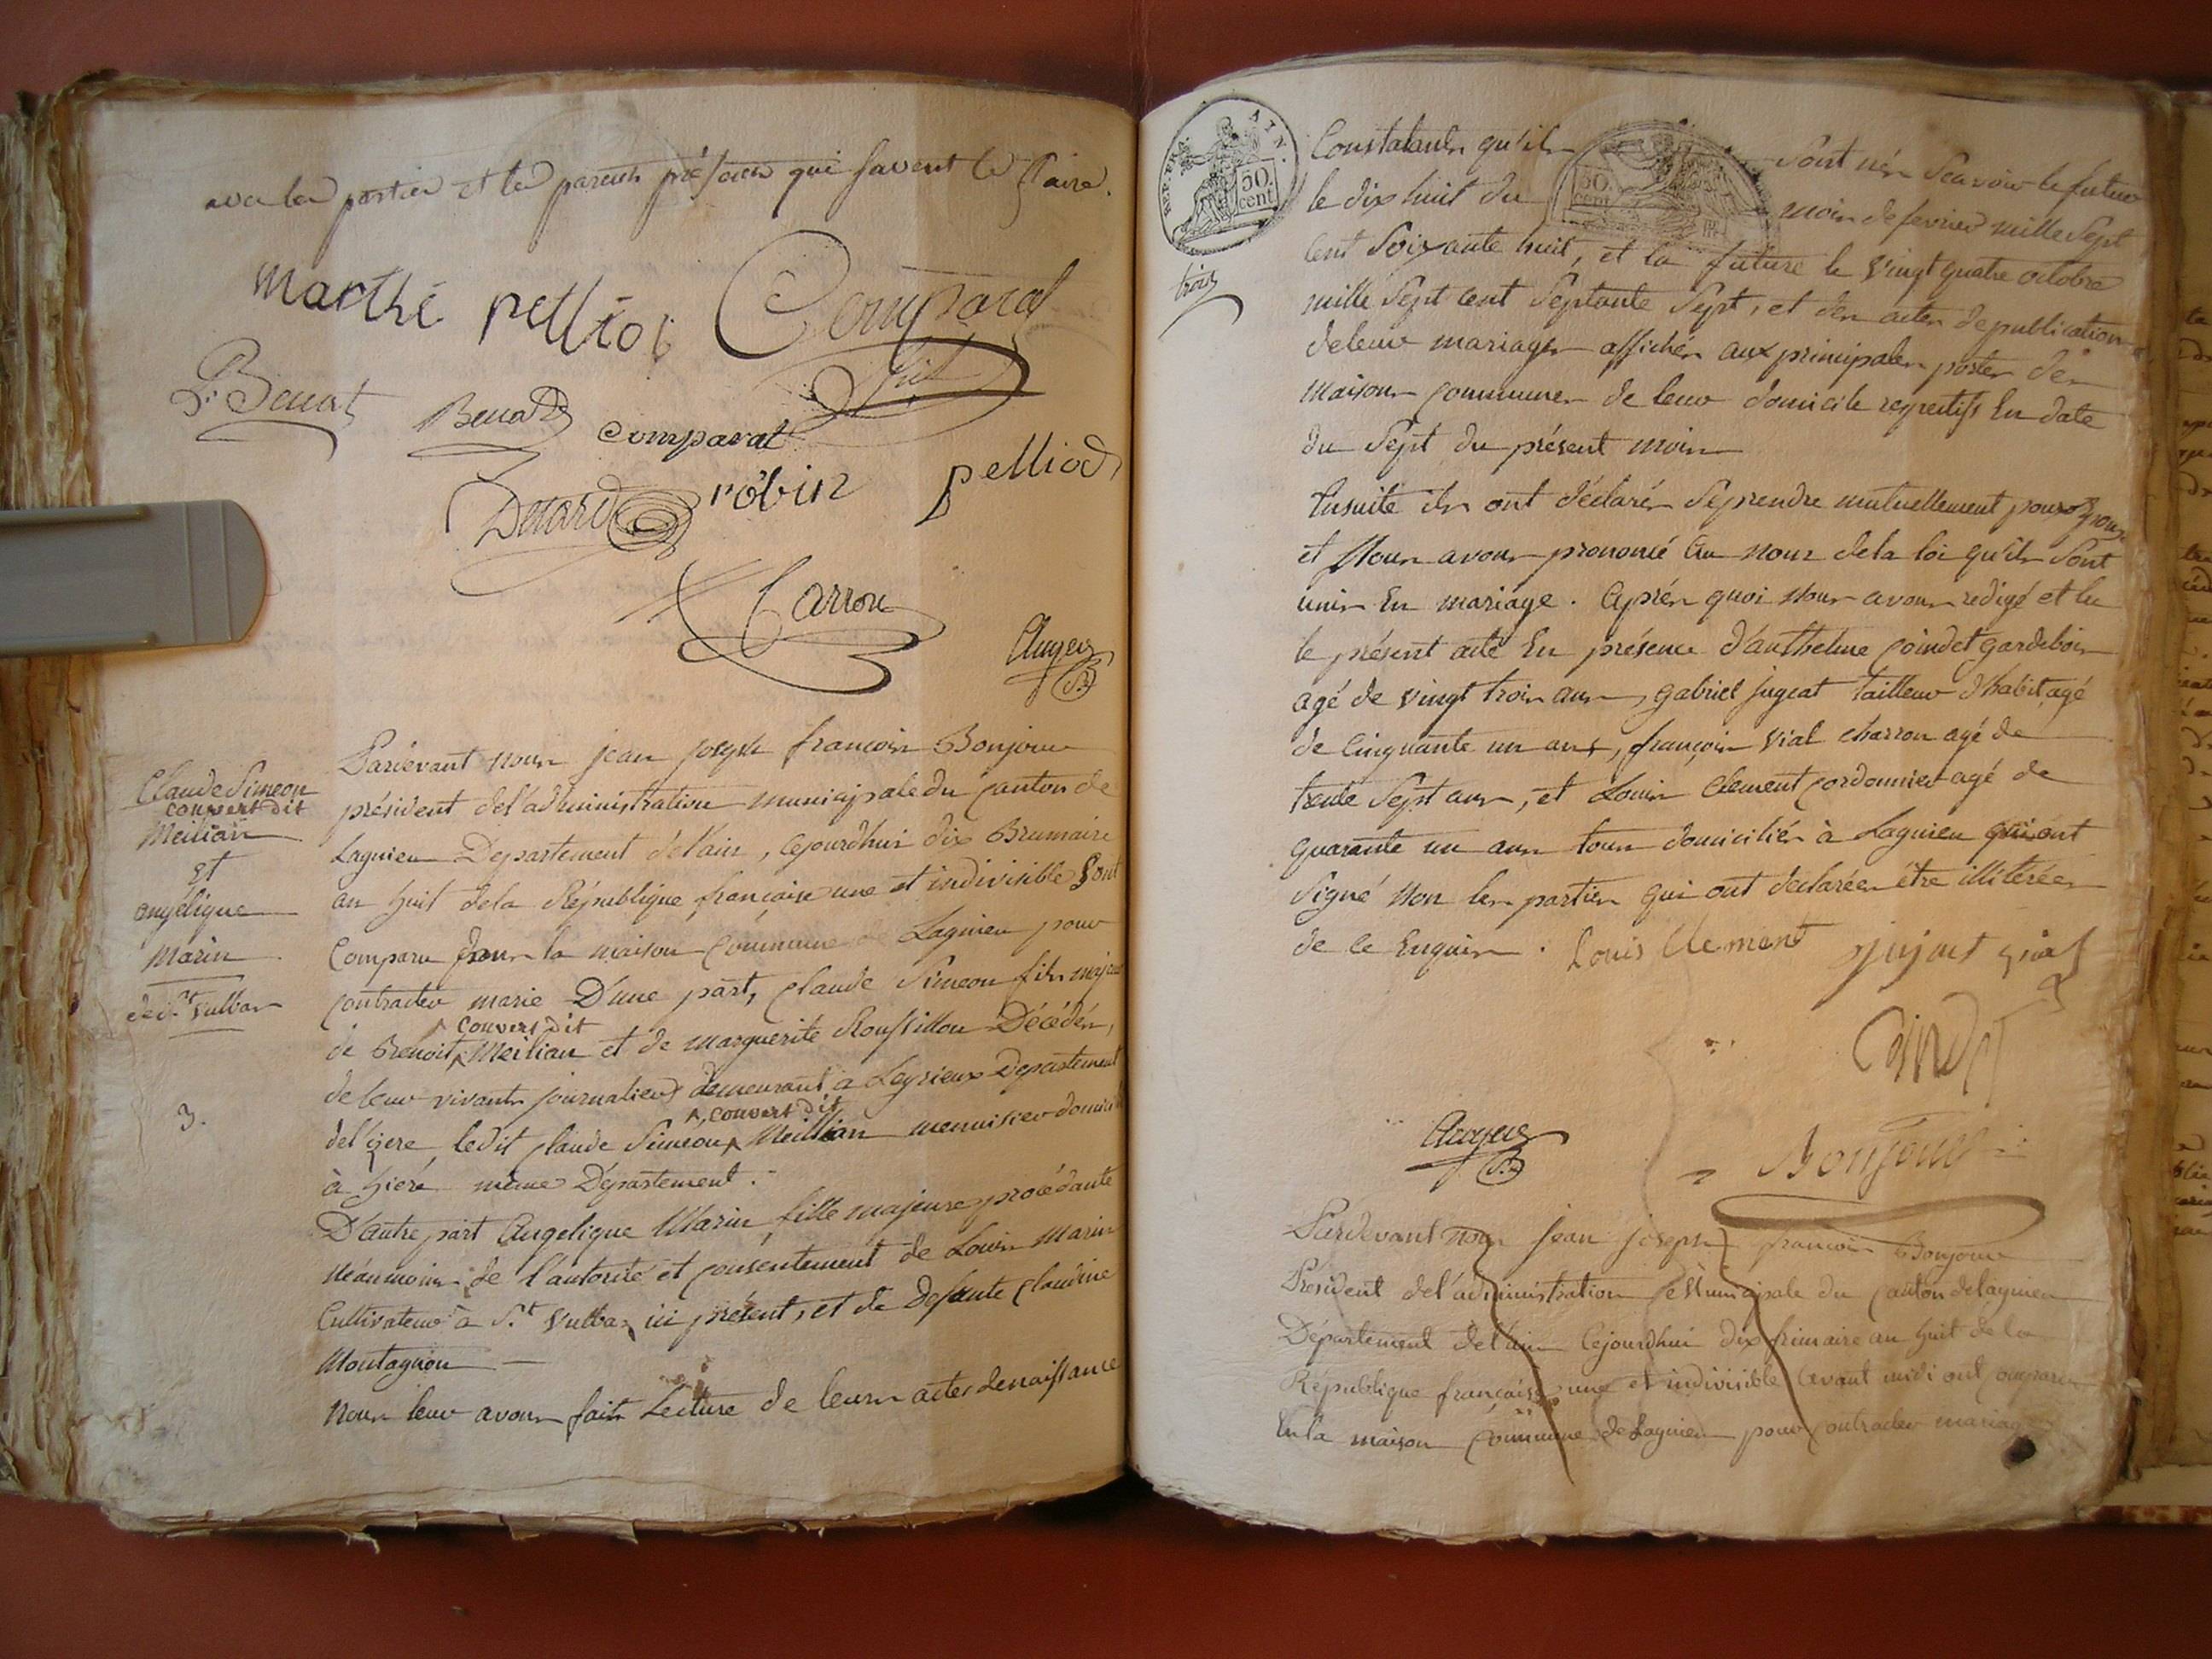 avec les parties et les parens présens qui savent le faire.
marthe pelliod Comparat
fils
P. Benat
Benat
comparat
Dunard robin pelliod
Carron
Augers
Claude Simeon
convert dit
Meilian
et
angélique
Marin
de St. Vulbas
3.
Pardevant nous jean joseph françois Bonjour
président de l'administration municipale du canton de
Lagnieu Departement de l'ain, cejourdhui dix Brumaire
an huit de la République française une et indivisible sont
comparu dans la maison commune de Lagnieu pour
contracter marie D'une part, claude Simeon fils majeur
convert dit
de Benoit Meilian et de marguerite Roussillon Décédés,
de leur vivants journaliers demeurant a Leyrieux Departement
, convert dit
del'izere, ledit claude Simeon Meillian menuisier domicilié
à hiere même Département.
D'autre part Angelique Marin, fille majeure procédante
néanmoins de l'autorité et consentement de Louis Marin
Cultivateur à St. Vulbas ici présent, et de defunte claudine
Montagnon
nous leur avons fait Lecture de leurs actes de naissance
REP. FRA. AIN.
50
cent.
trois
50
cent
Constatants qu'ils sont nés Scavoir le futur
le dix huit du mois de fevrier mille Sept
cent Soixante huit, et la future le vingt quatre octobre
mille Sept cent Septante Sept, et des actes de publications
de leur mariages affichés aux principales portes des
maisons communes de leur domicile respectifs En date
du Sept du présent mois
Ensuite ils ont déclarés Se prendre mutuellement pour Epoux
et Nous avons prononcé au nom de la loi qu'ils sont
unis En mariage. Après quoi Nous avons redigé et lu
le présent acte En présence d'anthelme coindet gardebois
agé de vingt trois ans, gabriel jujeat tailleur d'habit agé
de Cinquante un ans, françois vial charron agé de
trente Sept ans, et Louis Clement cordonnier agé de
quarante un ans tous domiciliés à Lagnieu qui ont
Signé non les parties qui ont declarées être illitérées
de ce Enquis. Louis Clement jujeat vial
Coindet
Augers
Bonjour
Pardevant nous jean joseph françois Bonjour
Président de l'administration Municipale du canton de lagnieu
Département de l'ain Cejourdhui dix frimaire an huit de la
République française une et indivisible avant midi ont comparu
En la maison commune de Lagnieu pour contracter mariage